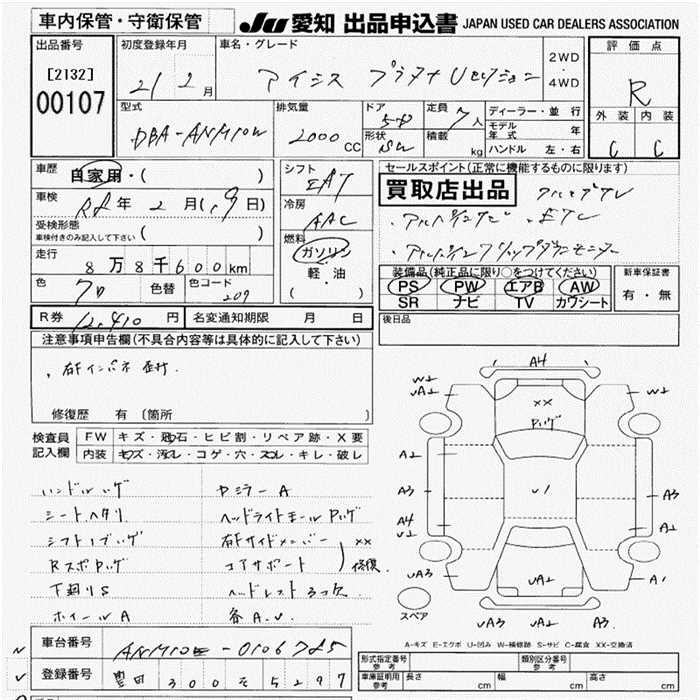 車内保管・守衛保管
JU 愛知 出品申込書 JAPAN USED CAR DEALERS ASSOCIATION
出品番号
[2132]
00107
初度登録年月
21 2 月
車名・グレード
アイシス プラタナ Uセレクション
2WD
・
4WD
評価点
R
外装 内装
C C
型式
DBA-ANM10W
排気量
2000 CC
ドア
5D
形状
SW
定員
7人
積載
kg
ディーラー・並行
モデル年式 年
ハンドル 左・右
車歴
自家用・( )
車検
R2年 2月(19日)
受検形態
車検付きのみ記入して下さい ( )
走行
8万8千600km
色 クロ 色替 色コード 209
シフト
FAT
冷房
AAC
燃料
ガソリン
軽・油
( )
セールスポイント(正常に機能するものに限ります)
買取店出品
・アルパインナビ ・ETC
・アルパインフリップダウンモニター
装備品(純正品に限り○をつけてください)
PS PW エアB AW
SR ナビ TV カワシート
新車保証書
有・無
R券 12,410 円
名変通知期限 月 日
後日品
注意事項申告欄(不具合内容等は具体的に記入して下さい)
修復歴 有 〔箇所
検査員記入欄
FW キズ・飛石・ヒビ割・リペア跡・X要
内装 キズ・汚レ・コゲ・穴・スレ・キレ・破レ
ハンドルハゲ
シートヘタリ
シフトノブハゲ
RスポPハゲ
下廻りS
ホイールA
Fミラー A
ヘッドライトモールPハゲ
右Fサイドメンバー XX
コアサポート 修復
ヘッドレスト3コ欠
各A.U
A4
W2
UA2
XX
Pハゲ
W2
A2
A2
A3
U1
A3
A4
U2
A1
UA3
UA2
A1
スペア
UA3 UA2 A3
A-キズ E-エクボ U-凹み W-補修跡 S-サビ C-腐食 XX-交換済
車台番号
ANM10-0106785
登録番号
豊田 300 そ 5297
形式指定番号
参考
類別区分番号
参考
車庫証明用
参考
長さ cm 幅 cm 高さ cm